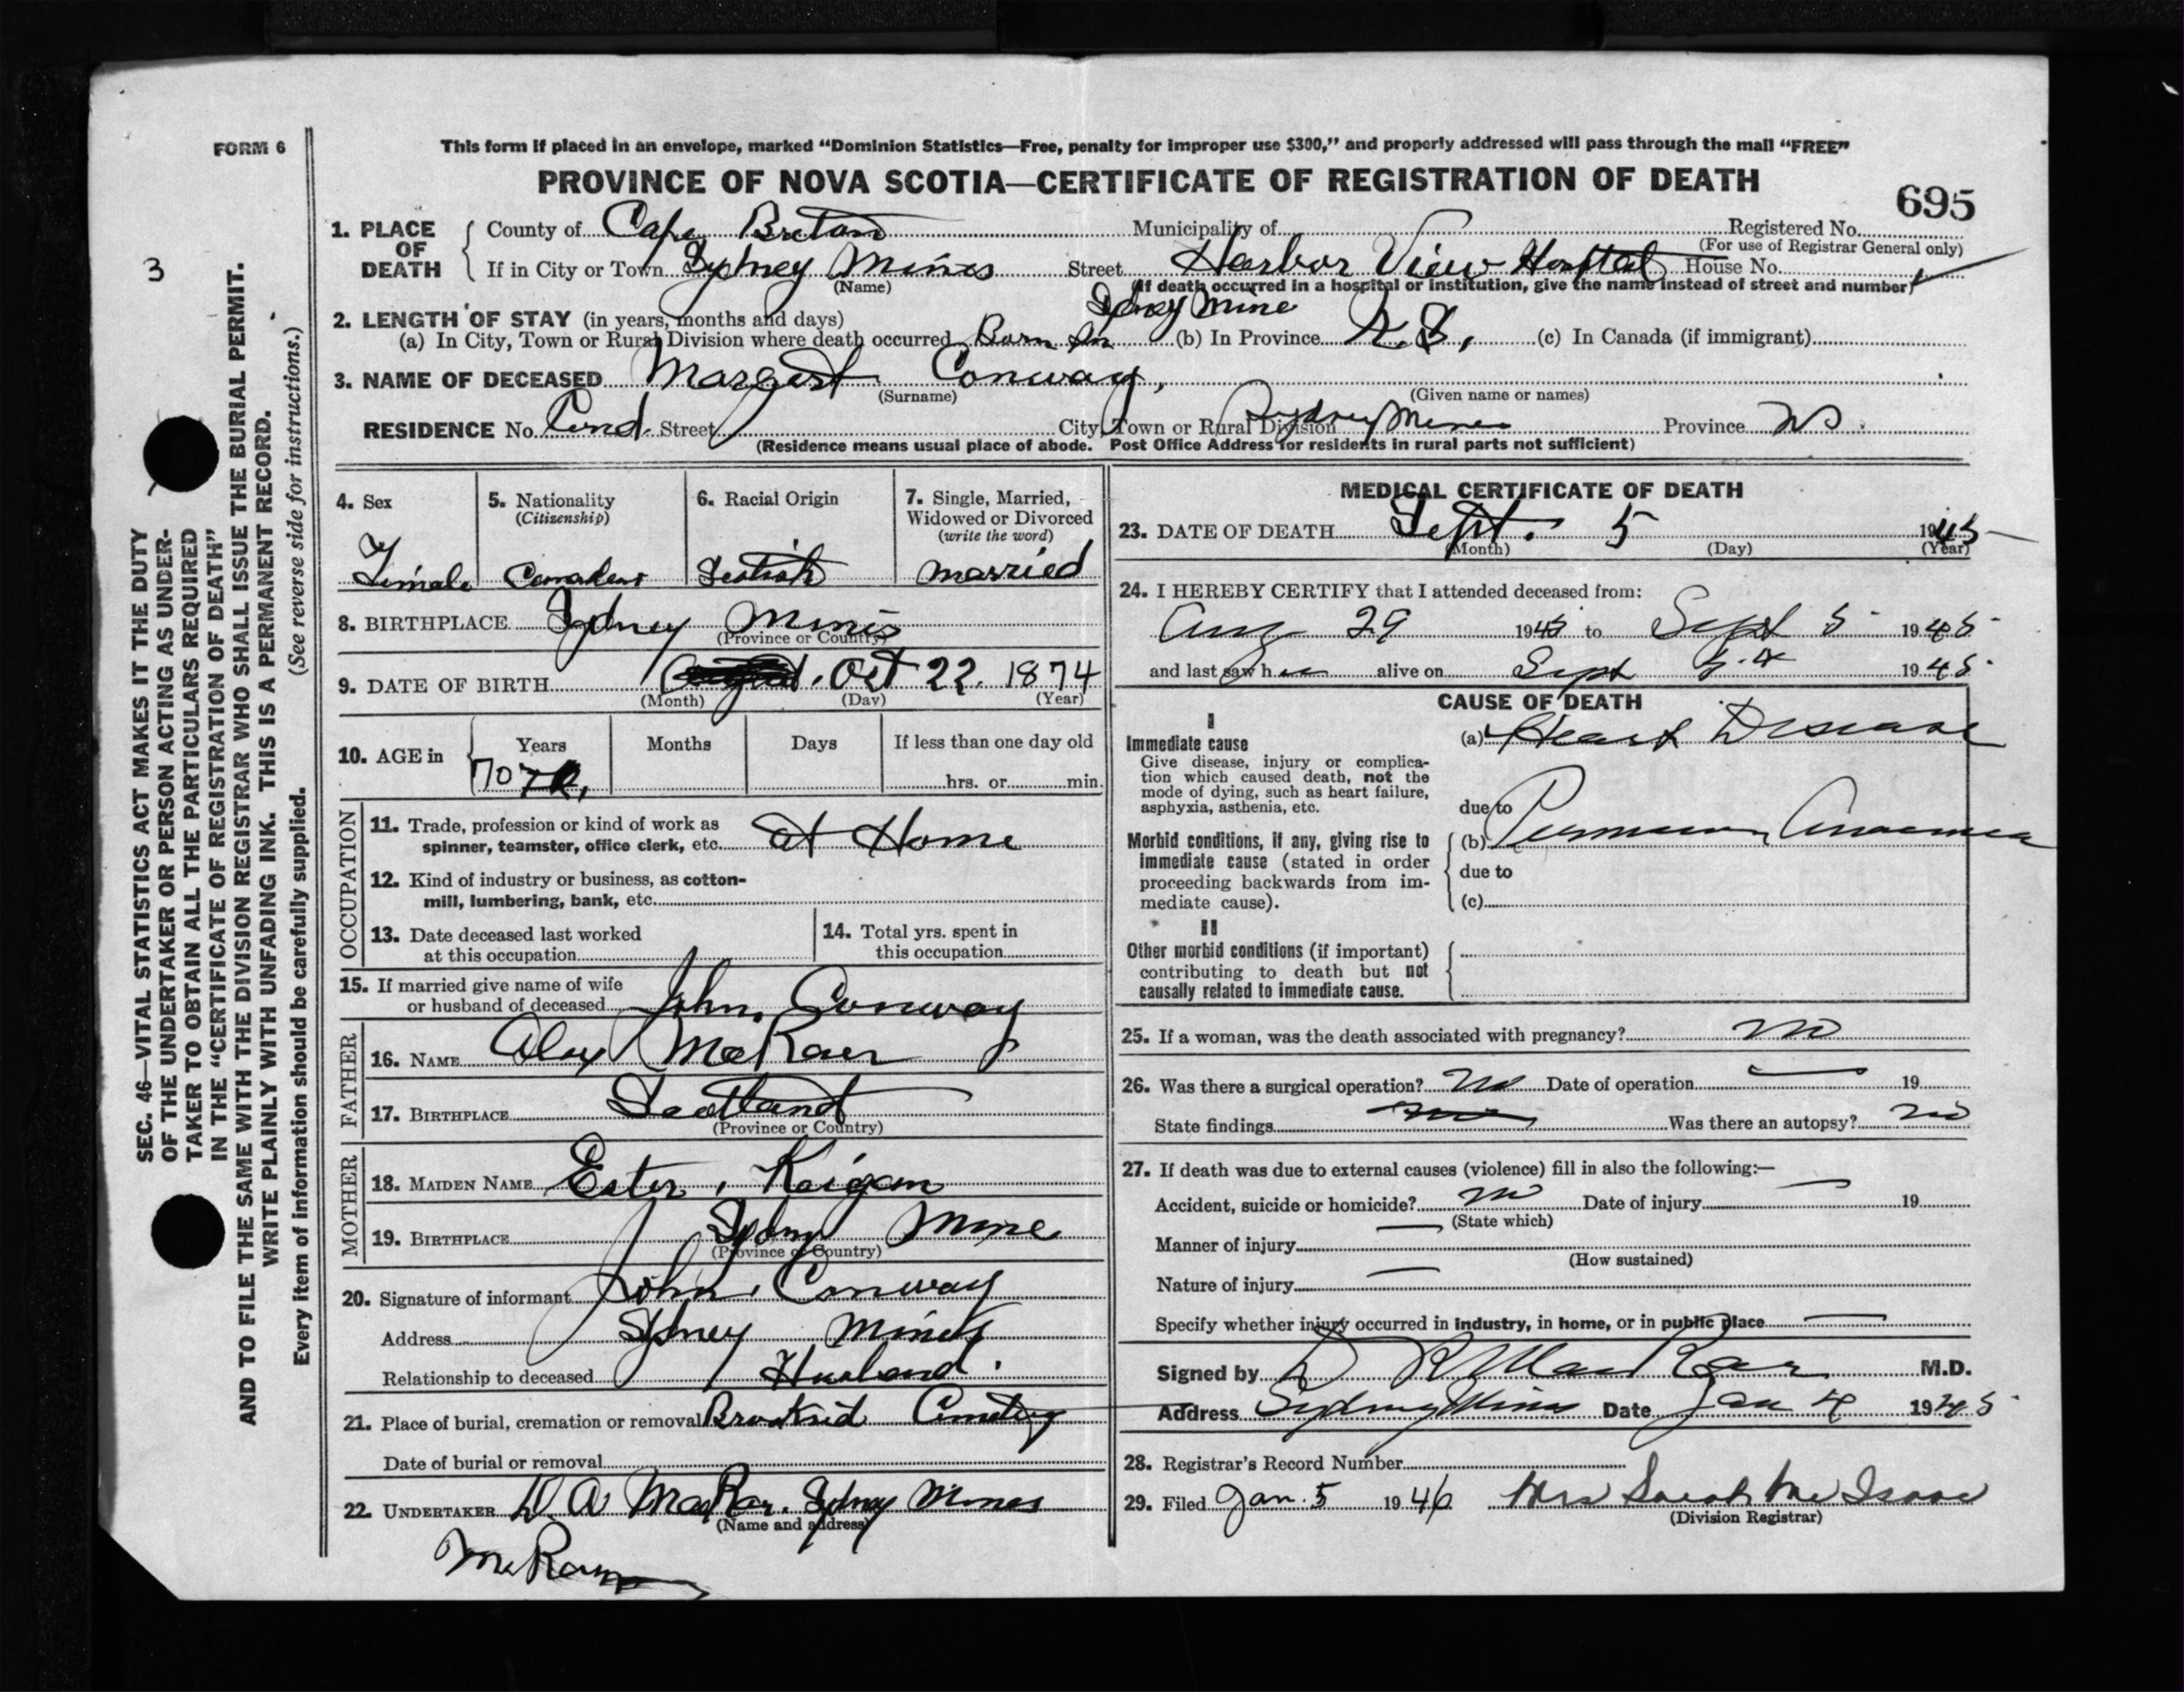 FORM 6
This form if placed in an envelope, marked “Dominion Statistics—Free, penalty for improper use $300,” and properly addressed will pass through the mail “FREE”
PROVINCE OF NOVA SCOTIA—CERTIFICATE OF REGISTRATION OF DEATH
695
1. PLACE OF DEATH
County of Cape Breton Municipality of Registered No.
(For use of Registrar General only)
If in City or Town Sydney Mines Street Harbor View Hospital House No.
(Name) (If death occurred in a hospital or institution, give the name instead of street and number)
Sydney Mine
2. LENGTH OF STAY (in years, months and days)
(a) In City, Town or Rural Division where death occurred Born In (b) In Province N.S. (c) In Canada (if immigrant)
3. NAME OF DECEASED Margaret Conway,
(Surname) (Given name or names)
RESIDENCE No. Street City, Town or Rural Division Sydney Mines Province NS
(Residence means usual place of abode. Post Office Address for residents in rural parts not sufficient)
4. Sex
Female
5. Nationality
(Citizenship)
Canadian
6. Racial Origin
Scotish
7. Single, Married,
Widowed or Divorced
(write the word)
married
8. BIRTHPLACE Sydney Mines
(Province or Country)
9. DATE OF BIRTH Oct 22. 1874
(Month) (Day) (Year)
10. AGE in Years Months Days If less than one day old
70 hrs. or min.
OCCUPATION
11. Trade, profession or kind of work as
spinner, teamster, office clerk, etc. at Home
12. Kind of industry or business, as cotton-
mill, lumbering, bank, etc.
13. Date deceased last worked
at this occupation
14. Total yrs. spent in
this occupation
15. If married give name of wife
or husband of deceased John Conway
FATHER
16. NAME Alex
17. BIRTHPLACE Scotland
(Province or Country)
MOTHER
18. MAIDEN NAME Ester
19. BIRTHPLACE Sydney Mine
(Province or Country)
20. Signature of informant John Conway
Address Sydney Mines
Relationship to deceased Husband.
21. Place of burial, cremation or removal Brooksid Cemetery
Date of burial or removal
22. UNDERTAKER Sydney Mines
(Name and address)
MEDICAL CERTIFICATE OF DEATH
23. DATE OF DEATH Sept. 5 1945
(Month) (Day) (Year)
24. I HEREBY CERTIFY that I attended deceased from:
Aug 29 1945 to Sept 5 1945
and last saw her alive on Sept 1945
CAUSE OF DEATH
I
Immediate cause
Give disease, injury or complica-
tion which caused death, not the
mode of dying, such as heart failure,
asphyxia, asthenia, etc.
(a) Heart Disease
due to
Morbid conditions, if any, giving rise to
immediate cause (stated in order
proceeding backwards from im-
mediate cause).
(b) Anaemia
due to
(c)
II
Other morbid conditions (if important)
contributing to death but not
causally related to immediate cause.
25. If a woman, was the death associated with pregnancy? no
26. Was there a surgical operation? no Date of operation 19
State findings Was there an autopsy? no
27. If death was due to external causes (violence) fill in also the following:—
Accident, suicide or homicide? no Date of injury 19
(State which)
Manner of injury
(How sustained)
Nature of injury
Specify whether injury occurred in industry, in home, or in public place
Signed by M.D.
Address Sydney Mines Date Jan 4 1945
28. Registrar's Record Number
29. Filed Jan. 5 1946 Mrs Sarah Mc Isaac
(Division Registrar)
3
SEC. 46—VITAL STATISTICS ACT MAKES IT THE DUTY
OF THE UNDERTAKER OR PERSON ACTING AS UNDER-
TAKER TO OBTAIN ALL THE PARTICULARS REQUIRED
IN THE “CERTIFICATE OF REGISTRATION OF DEATH”
AND TO FILE THE SAME WITH THE DIVISION REGISTRAR WHO SHALL ISSUE THE BURIAL PERMIT.
WRITE PLAINLY WITH UNFADING INK. THIS IS A PERMANENT RECORD.
Every item of information should be carefully supplied. (See reverse side for instructions.)